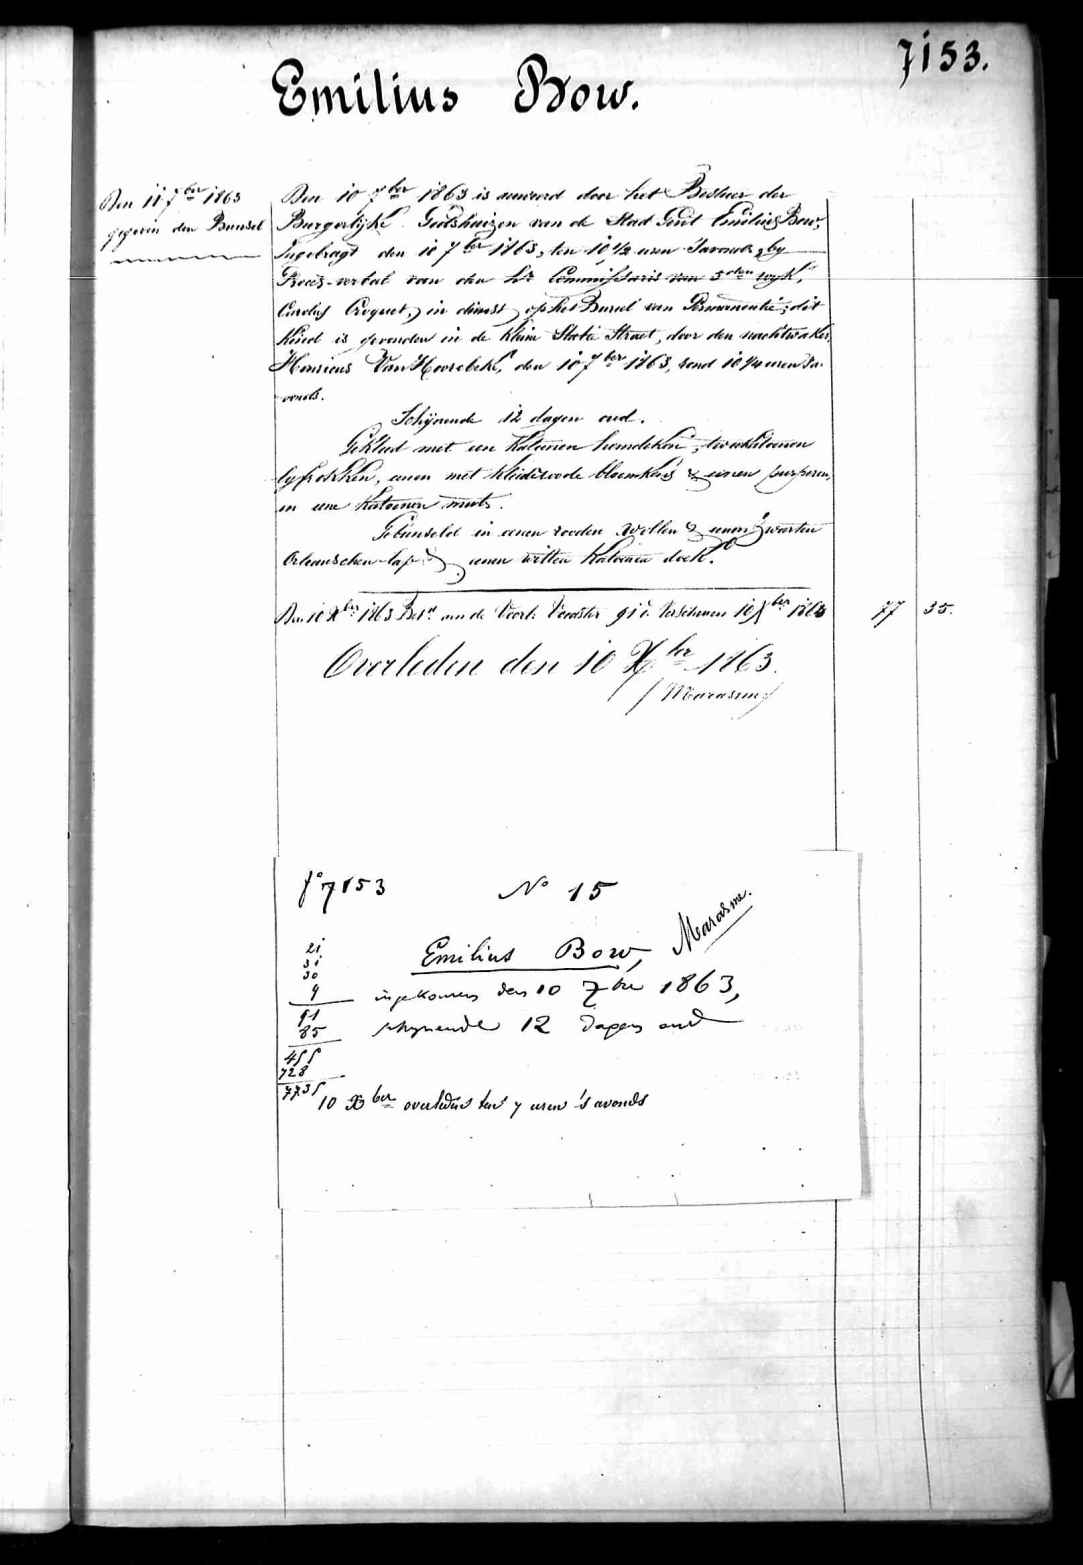 7153.
Emilius Bow.
Den 11 7ber 1863
gegeven den Bunsel
Den 10 7ber 1863 is aenveerd door het Bestuer der
Burgerlyke Godshuizen van de Stad Gent Emilius Bow,
Ingebragt den 10 7ber 1863, ten 10 1/2 uren Savonds, by
Proces-verbal van den hr Commissaris van 5den wyk,
Carolus Croquet, in dienst op het Bureel van Permanentie; dit
kind is gevonden in de kleine State Straet, door den nachtwaker,
Henricus Van Hoorebeke, den 10 7ber 1863, rond 10 1/4 uren Sa-
vonds.
Schynende 12 dagen oud.
Gekleed met een katoenen hemdeken, twee katoenen
lyfrokken, eenen met kleine roode bloemkens & eenen purperen,
en eene katoenen muts.
Gebunseld in eenen rooden wollen & eenen zwarten
Orleanschen lap & eenen witten katoenen doek.
Den 10 Xber 1863 Bet. aen de Voorl: Voedster 91 d. Verschenen 10 Xber 1863 77 35.
Overleden den 10 Xber 1863.
(Marasme)
fo 7153 No 15
Marasme.
Emilius Bow,
21
31
30
9
91
85
455
728
7735
ingekomen den 10 7ber 1863,
schynende 12 dagen oud
10 Xber overleden ten 7 uren 's avonds